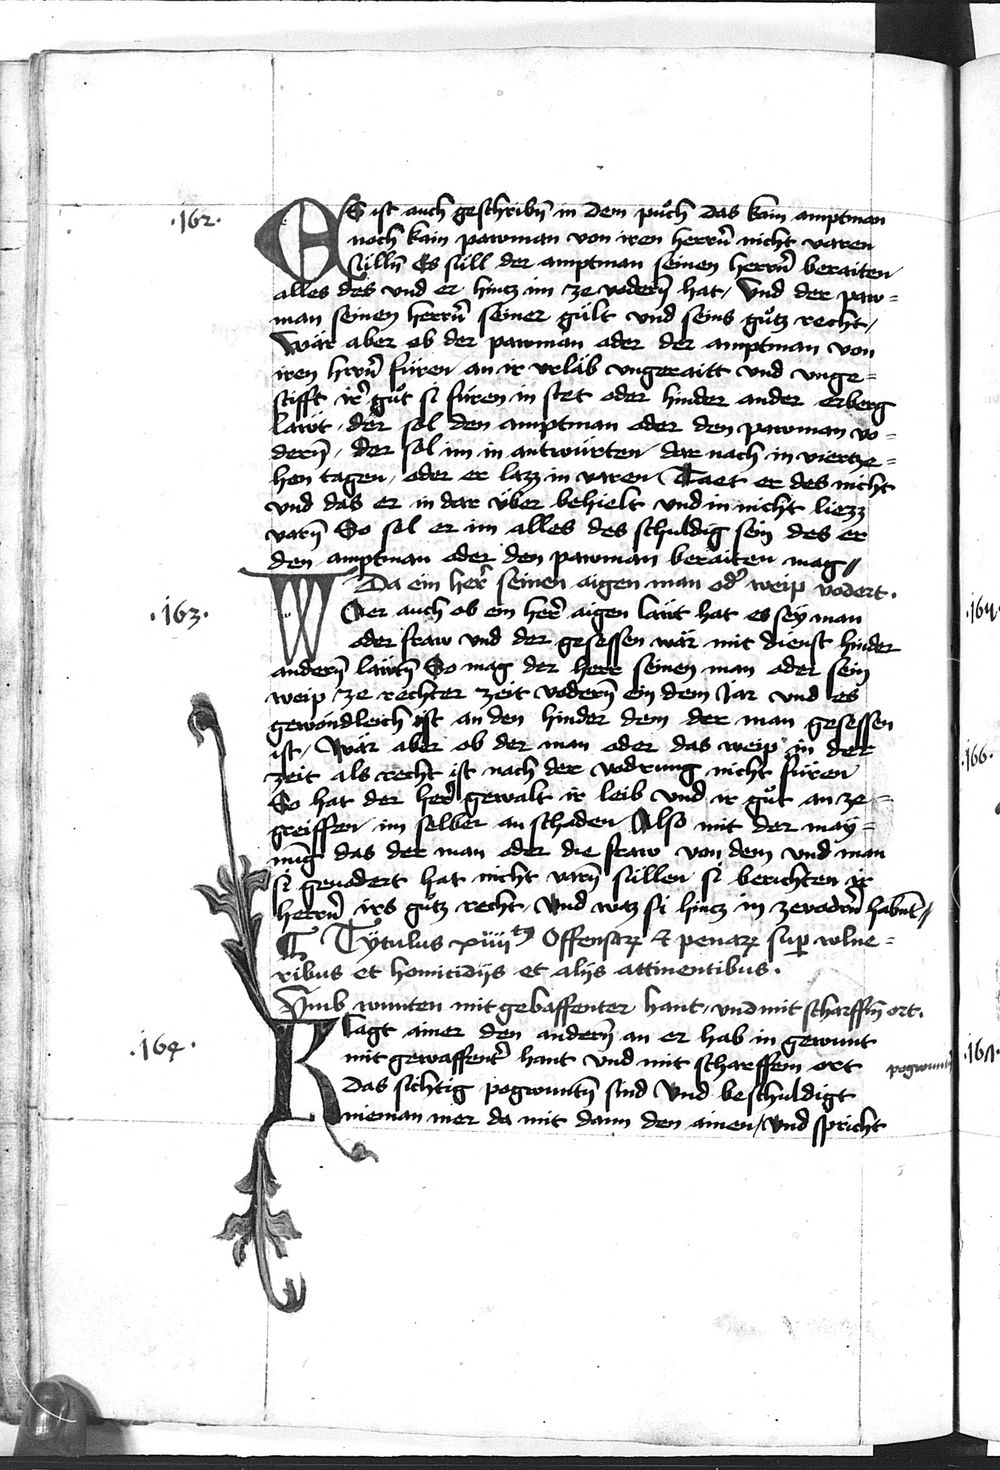 ·162·
ES ist auch geschribn̄ in dem půch das kain amptman
noch kain pawman von iren herrn̄ nicht varen
sülln̄ Es süll der amptman seinen herrn̄ beraiten
alles des vnd er hincz im ze vodern̄ hat / Vnd der paw=
man seinen herrn̄ seiner gült vnd seins gůtz recht /
Wär aber ob der pawman oder der amptman von
iren hrrn̄ füren an ir vrläb vngeraitt vnd vnge=
stifft ir gůt si füren in stet oder hinder ander erberg
läwt / der sol den amptman oder den pawman vo=
dern̄ / der sol im in antwürten dar nach in viertze=
hen tagen / oder er lazz in varen Taet er des nicht
vnd das er in dar über behielt vnd in nicht liezz
varn̄ So sol er im alles des schuldig sein des er
den amptman oder den pawman beraiten mag //
Da ein her seinen aigen man od weip vodert ·
·163·
WAer auch ob ein her aigen läwt hat es sey man
oder fraw vnd der gesessen wär mit dienst hinder
andern̄ läwtn̄ So mag der herr seinen man oder sein
weip ze rechter zeit vodern̄ ein dem Jar vnd es
gewöndleich ist an den hinder dem der man gesessen
ist / Wär aber ob der man oder das weip in der
zeit als recht ist nach der vodrung nicht füren
So hat der her gewalt ir leib vnd ir gůt an ze=
greiffen im selber an schaden / Also mit der may=
nūg das der man oder die fraw von dem vnd man
si geuodert hat nicht varn̄ süllen si berichten ir
herrn̄ irs gůtz recht / Vnd waz si hincz in zevodrn̄ habnt //
¶ Tytulus xiiii offensarꝝ et penarꝝ suꝑ wlne=
ribus et homicidijs et alijs attinentibus ·
Vmb wunten mit gebaffenter hant / vnd mit scharffn̄ ort ·
·164·
Klagt ainer den andern̄ an er hab in gewunt
mit gewaffent hant vnd mit scharffem ort
Das sichtig pogwuntn̄ sind Vnd beschuldigt
nieman mer da mit dann den ainen / Vnd spricht
·166·